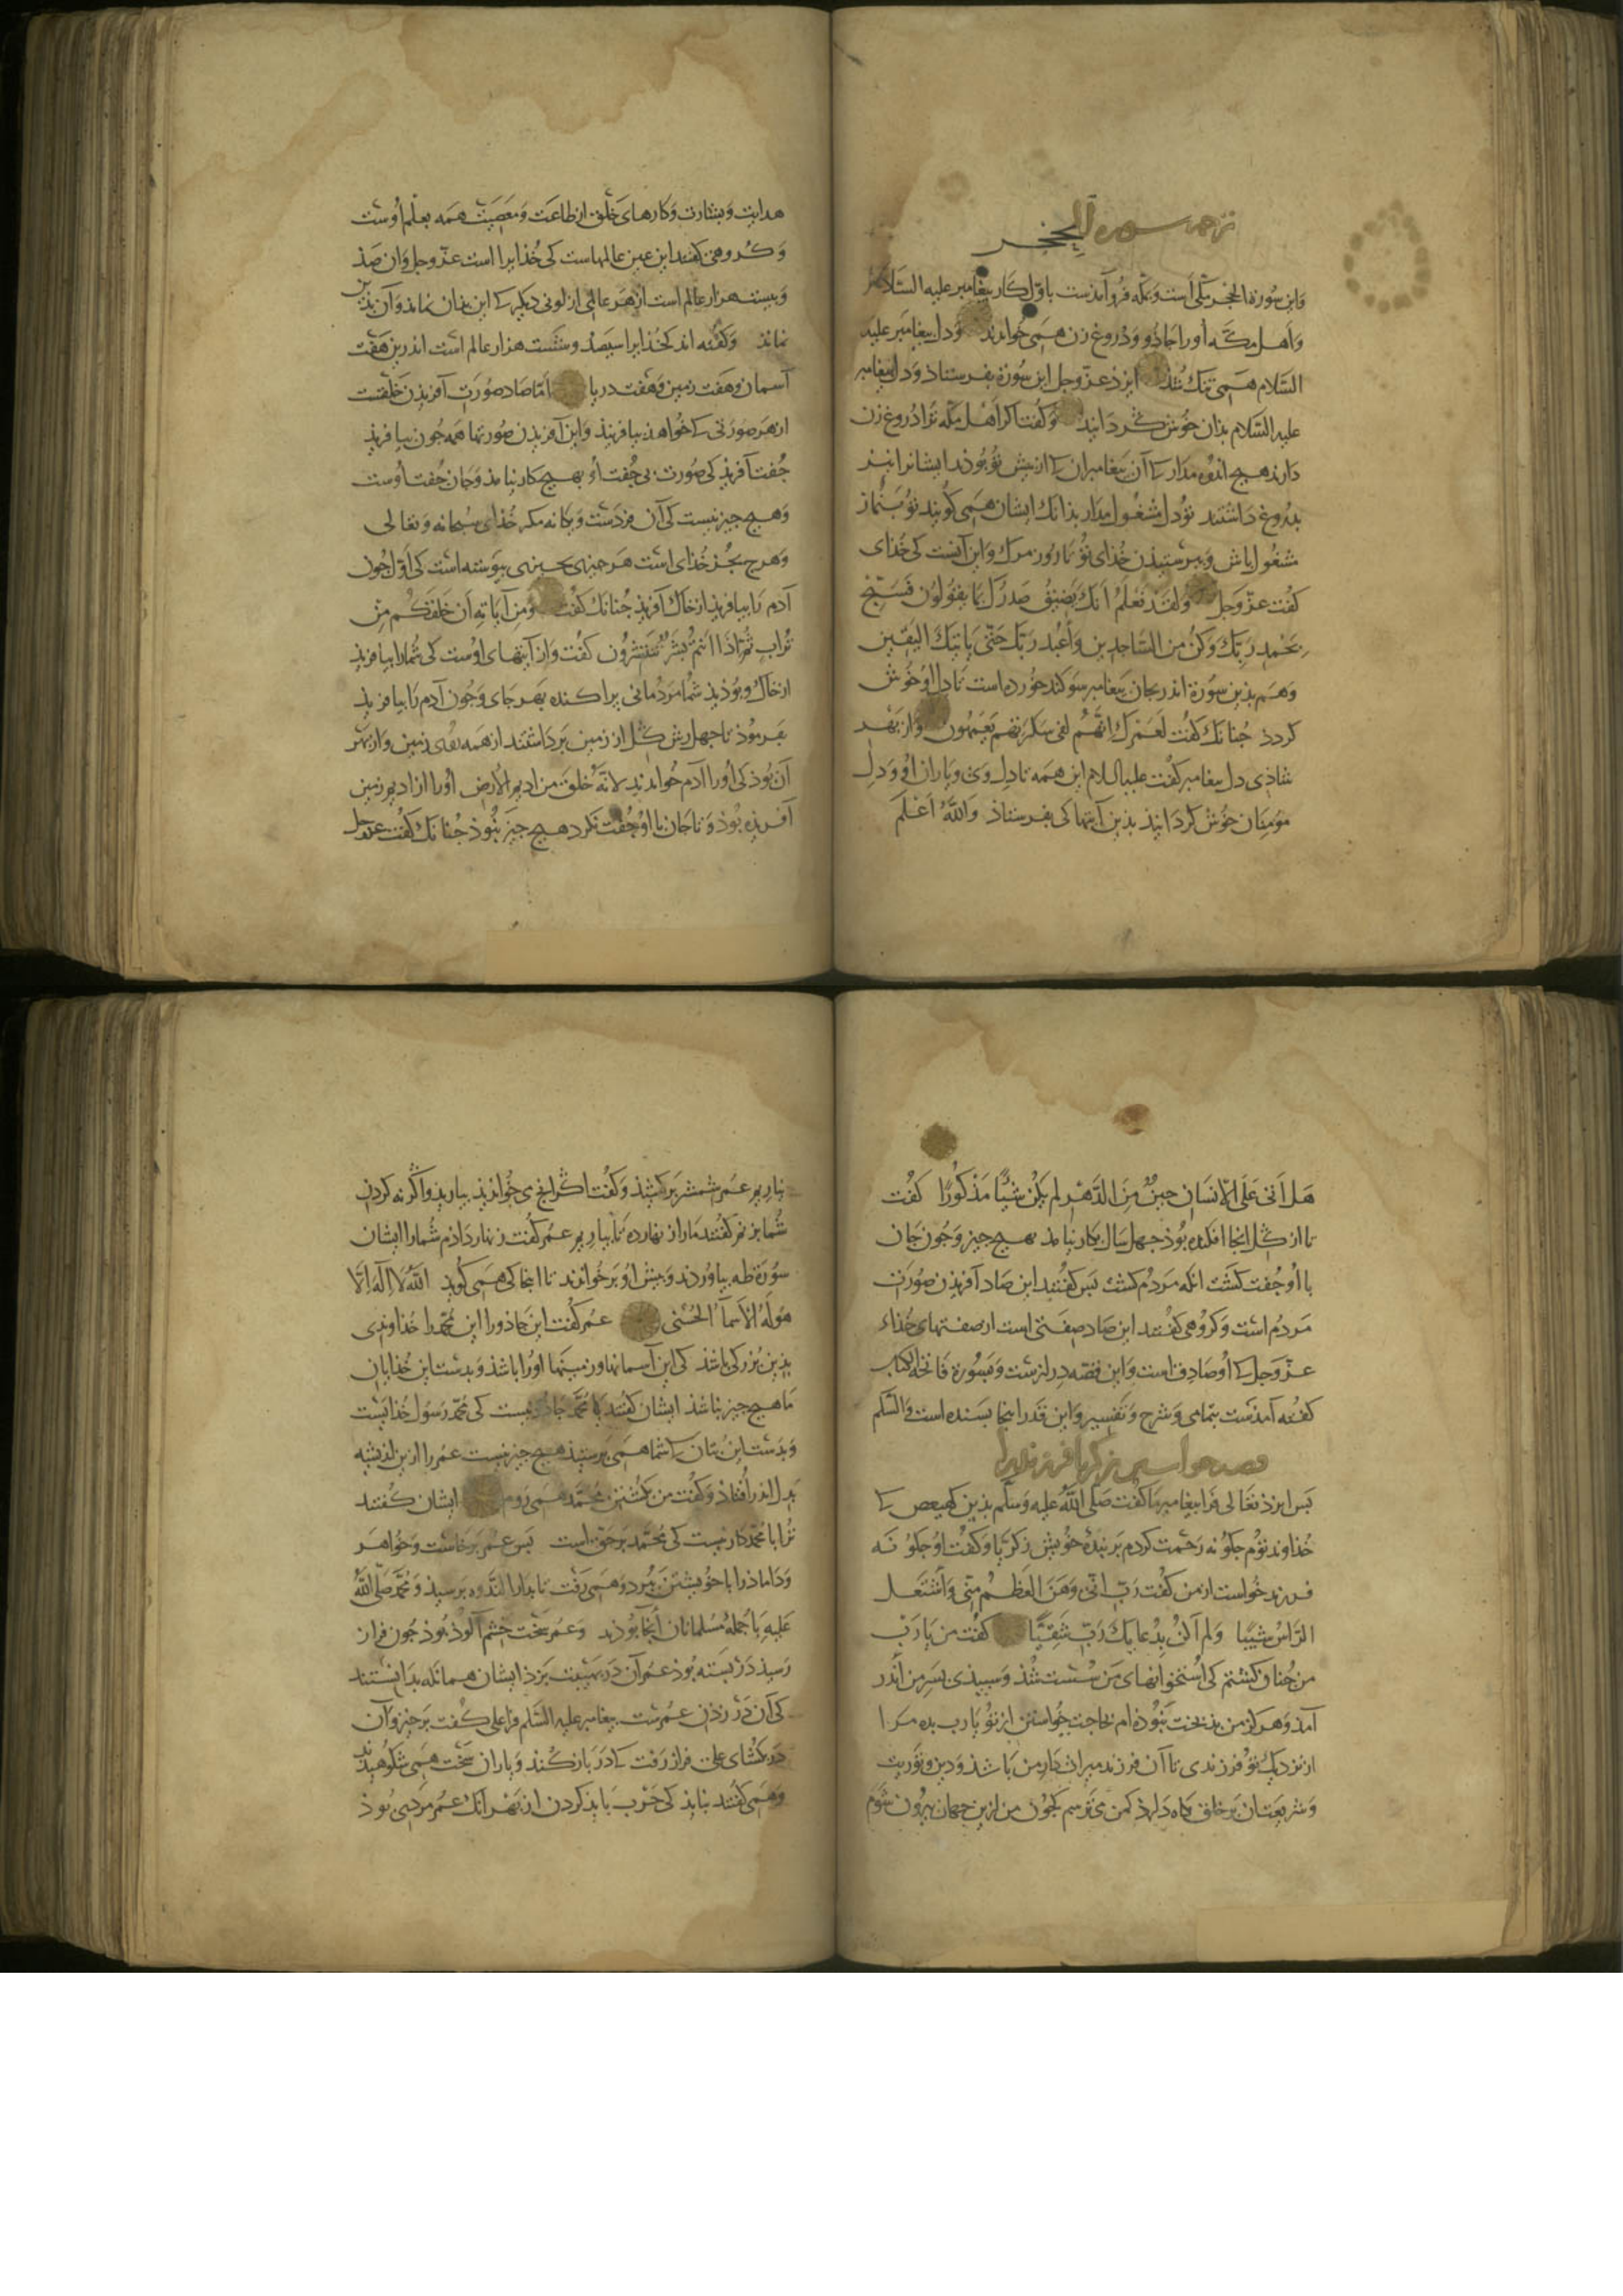 ترجمه سورة الحجر
واین سورة الحجر مکی است و بمکه فروآمدست باوّل کار بیغامبر علیه السّلام
و اهل مکّه اورا جاذو و دروغ زن همی خواندند و دل بیغامبر علیه
السّلام همی تنک شذ ایزذ عزّ وجل این سورة بفرستاذ و دل بیغامبر
علیه السّلام بذان خوش کردانیذ و کفت اکر اهل مکّه ترا دروغ زن
دارند هیج اندوه مدار کی آن بیغامبران کی از بیش تو بوذند ایشانرا نیز
بدروغ داشتند تو دل مشغول مدار بذانک ایشان همی کویند تو بنماز
مشغول باش و ببرستیذن خدای تو تا روز مرک و این آنست کی خدای
کفت عزّ وجل وَلَقَد نَعْلَمُ اَنَّكَ يَضيقُ صَدرُكَ بِمَا يَقُولُون فَسَبِّح
بِحَمْدِ رَبِّكَ وَكُنْ مِنَ السَّاجِدِين وَاعْبُد رَبَّكَ حَتّى يَاتِيَكَ اليَقين
و هم بذین سورة اندر بجان بیغامبر سوکند خورده است تا دل او خوش
کردذ جنانک کفت لَعَمْرُكَ اِنَّهُمْ لَفى سَكرَتِهِم يَعْمَهُون و از بهر
شاذی دل بیغامبر کفت علیه السلام این همه تا دل وی و یاران او و دل
مومنان خوش کردانیذ بذین آیتها کی بفرستاذ واللّه اعلم
هدایت و بشارت و کارهای خلق از طاعت و معصیت همه بعلم اوست
و کروهی کفتند این عین عالمهاست کی خذایرا است عزّ وجل و آن صذ
و بیست هزار عالم است از هر عالمی از لونی دیکر کی این بذان نماند و آن بذین
نماند و کفته اند کخذایرا سیصذ و شست هزار عالم است اندرین هفت
آسمان و هفت زمین و هفت دریا امّا صاد صورت آفریذن خلقتست
از هر صورتی کی خواهذ بیافریذ و این آفریذن صورتها همه جون بیافریذ
جفت آفریذ کی صورت بی جفت او بهیج کار نیامذ و جان جفت اوست
و هیج جیز نیست کی آن فردست و یکانه مکر خذای سبحانه و تعالی
و هرج بجز خذای است هر جیزی بجیزی بیوسته است کی اوّل جون
آدم را بیافریذ از خاک آفریذ جنانک کفت وَمِنْ آيَاتِهِ اَن خَلَقَكُم مِن
تُرابٍ ثُمَّ اِذَا اَنتُم بَشَرٌ تَنْتَشِرُون کفت و از آیتهای اوست کی شمارا بیافریذ
از خاک و بوذیذ شما مردمانی براکنده بهر جای و جون آدم را بیافریذ
بفرموذ تا جهل ارش کل از زمین برداشتند از همه بقعهای زمین و از بهر
آن بوذ کی اورا آدم خواندند لانّه خلق من ادیم الارض اورا از ادیم زمین
آفریده بوذ و تا جان با او جفت نکرد هیج جیز نبوذ جنانک کفت عزوجل
هَل اَتى عَلَى الاِنسَانِ حِينٌ مِنَ الدَّهْرِ لَم يَكُنْ شَيْئًا مَذْكُورًا کفت
تا از کل انجا افکنده بوذ جهل سال بکار نیامذ بهیج جیز و جون جان
با او جفت کشت انکه مردم کشت بس کفتند این صاد آفریذن صورت
مردم است و کروهی کفتند این صاد صفتی است از صفتهای خذاء
عزّ وجل کی او صادق است و این قصّه درازست و بسورة فاتحة الکتاب
کفته آمذست بتمامی و شرح و تفسیر و این قدر اینجا بسنده است والسّلم
قصه خواستن زکریا فرزند را
بس ایزذ تعالی فرا بیغامبر ما کفت صلی اللّه علیه وسلّم بذین کهیعص کی
خذاوند توم جکونه رحمت کردم بر بنده خویش زکریّا و کفت او جکونه
فرزند خواست از من کفت رَبّ اِنّى وَهَنَ العَظمُ مِنّى وَاشْتَعَل
الرَّاسُ شَيبًا وَلَم اَكُنْ بِدُعَائِكَ رَبِّ شَقِيًّا کفت من یا رب
من جنان کشتم کی استخوانهای من سست شذ و سبیذی بسر من اندر
آمذ و هرکز من بذبخت نبوذه ام بحاجت خواستن از تو یا رب بده مرا
از نزدیک تو فرزندی تا آن فرزند میراث دار من باشذ و دین و توریت
و شریعتان بر خلق نکاه دارذ کمن می ترسم کجون من ازین جهان بیرون شوم
نیاریم عمر شمشیر برکشیذ و کفت اکر انج می خواندیذ بیاریذ و اکر نه کردن
شما بزنم کفتند مارا زنهار ده تا بیاریم عمر کفت زنهار دادم شمارا ایشان
سورة طه بیاوردند و بیش او برخواندند تا انجا کی همی کوید اللّهُ لا اِلهَ اِلّا
هُوَ لَهُ الاَسمآءُ الحُسْنى عمر کفت این جاذورا این محمّدرا خذاوندی
بذین بزرکی باشذ کی این آسمانها و زمینها اورا باشذ و بدست این خذایان
ما هیج جیز نباشذ ایشان کفتند یا عمر محمد جاذو نیست کی محمّد رسول خذایست
و بدست این بتان کی شما همی برستیذ هیج جیز نیست عمر را ازین اندیشه
بدل اندر افتاذ و کفت من بکشتن محمّد همی روم ایشان کفتند
ترا با محمد کار نیست کی محمّد بر حق است بس عمر برخاست و خواهر
و داماذرا با خویشتن ببرد و همی رفت تا بدار الندوه برسیذ و محمّد صلّی اللّه
علیه با جملهٔ مسلمانان آنجا بوذند و عمر سخت خشم آلوذ بوذ جون فراز
رسیذ در بسته بوذ عمر آن در بهیبت بزد ایشان همانکه بدانستند
کی آن در زذن عمرست بیغامبر علیه السّلم فرا علی کفت برخیز و آن
در بکشای علی فراز رفت کی در باز کنذ و یاران سخت همی شکوهیدند
و همی کفتند نبایذ کی حرب بایذ کردن از بهر آنک عمر مردی بوذ